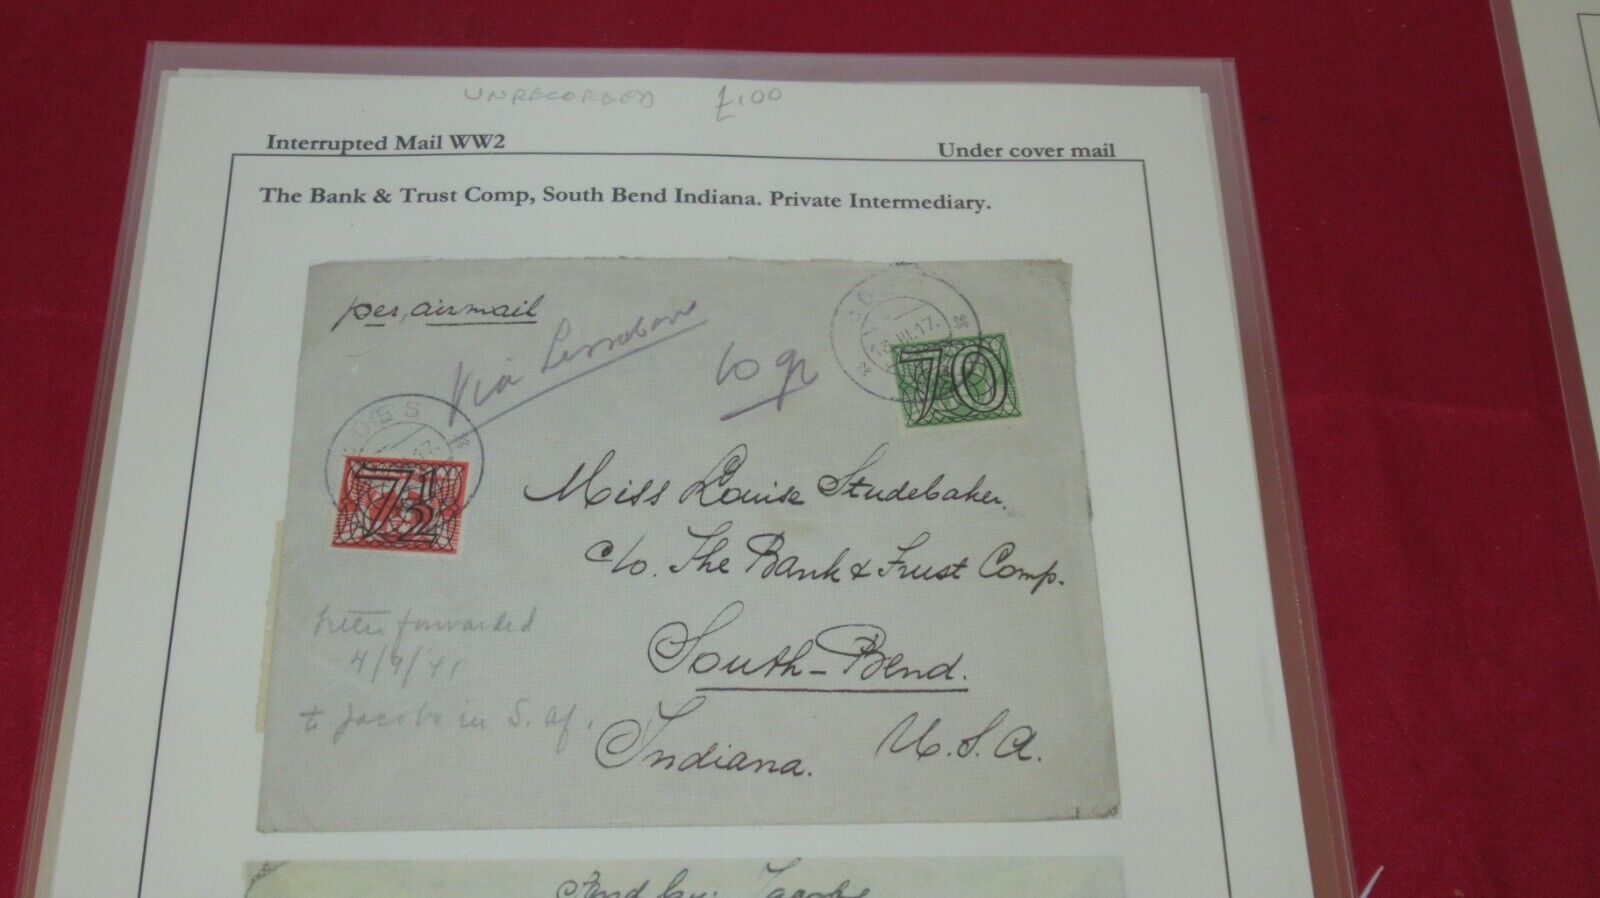 UNRECORDED £100
Interrupted Mail WW2
Under cover mail
The Bank & Trust Comp, South Bend Indiana. Private Intermediary.
per airmail
Via Lissabon
10 gr
13.III.17.
70
OES
17.
7½
Miss Louise Studebaker.
c/o. The Bank & Trust Comp.
South-Bend.
Indiana. U.S.A.
forwarded
4/9/41
to Jacobs in S. Af.
Send by: Jacobs